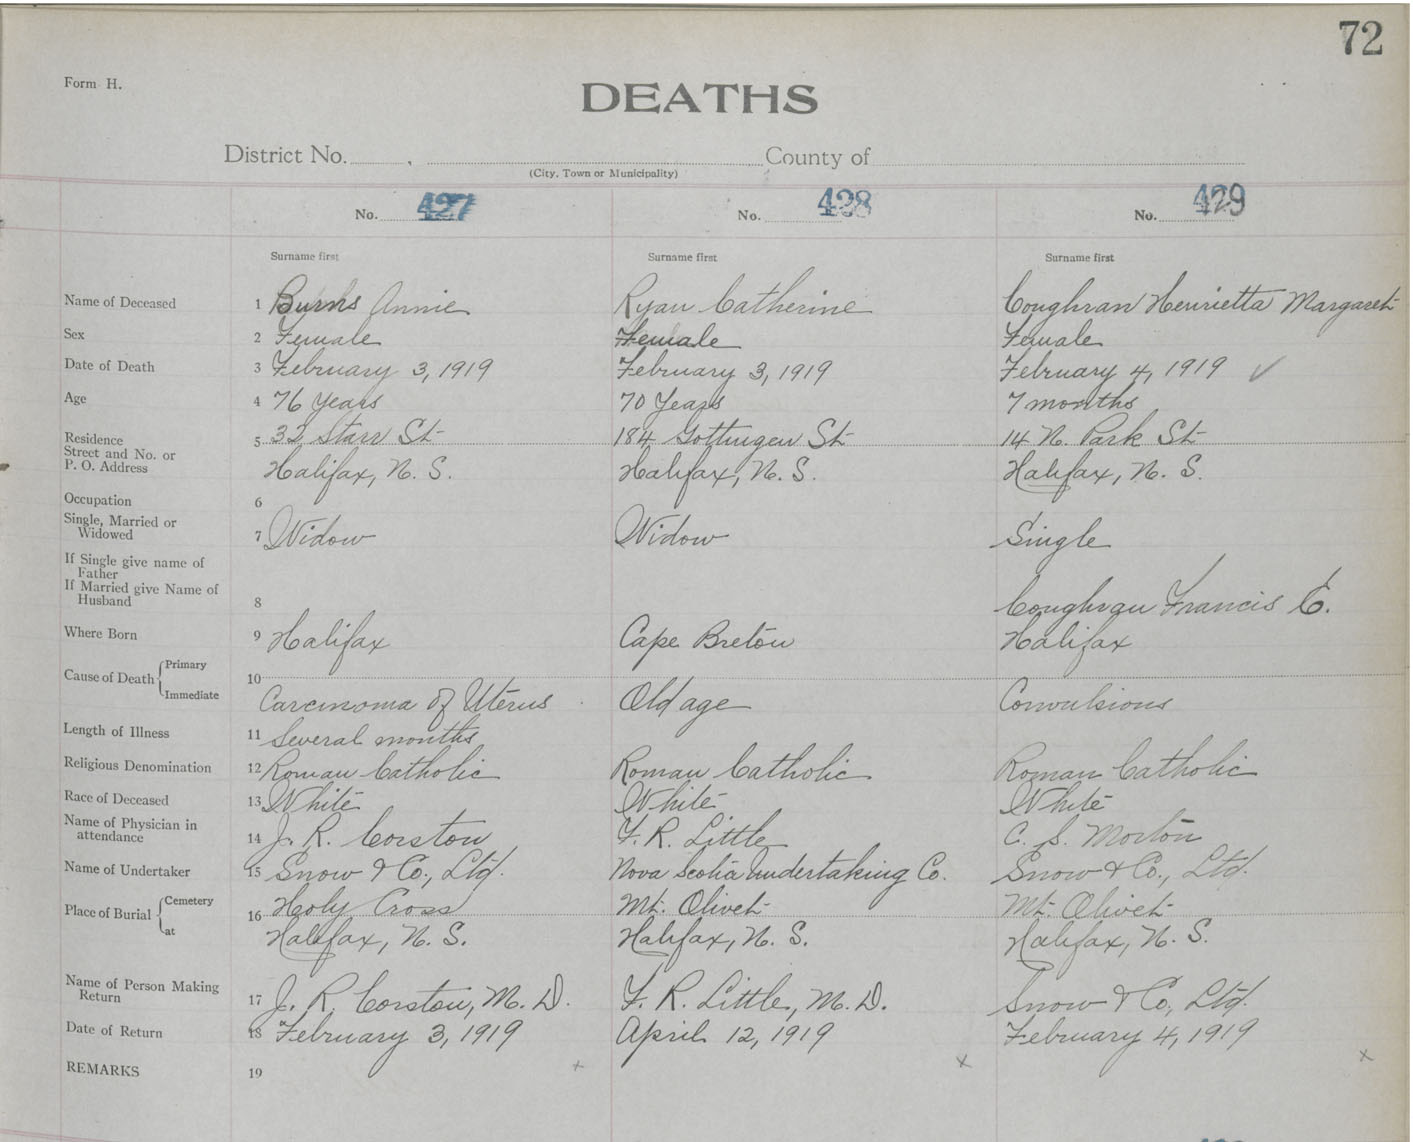 72
Form H.
DEATHS
District No. , County of
(City, Town or Municipality)
No. 427 No. 428 No. 429
Surname first Surname first Surname first
Name of Deceased 1 Burns Annie Ryan Catherine Coughran Henrietta Margaret
Sex 2 Female Female Female
Date of Death 3 February 3, 1919 February 3, 1919 February 4, 1919 ✓
Age 4 76 Years 70 Years 7 months
Residence 5 32 Starr St 184 Gottingen St 14 N. Park St
Street and No. or
P. O. Address Halifax, N. S. Halifax, N. S. Halifax, N. S.
Occupation 6
Single, Married or
Widowed 7 Widow Widow Single
If Single give name of
Father
If Married give Name of
Husband 8 Coughran Francis E.
Where Born 9 Halifax Cape Breton Halifax
Cause of Death Primary 10
Immediate Carcinoma of Uterus Old age Convulsions
Length of Illness 11 Several months
Religious Denomination 12 Roman Catholic Roman Catholic Roman Catholic
Race of Deceased 13 White White White
Name of Physician in
attendance 14 J. R. Corston F. R. Little C. S. Morton
Name of Undertaker 15 Snow & Co., Ltd. Nova Scotia Undertaking Co. Snow & Co., Ltd.
Place of Burial Cemetery 16 Holy Cross Mt. Olivet Mt. Olivet
at Halifax, N. S. Halifax, N. S. Halifax, N. S.
Name of Person Making
Return 17 J. R. Corston, M. D. F. R. Little, M. D. Snow & Co., Ltd.
Date of Return 18 February 3, 1919 April 12, 1919 February 4, 1919
REMARKS 19 x x x